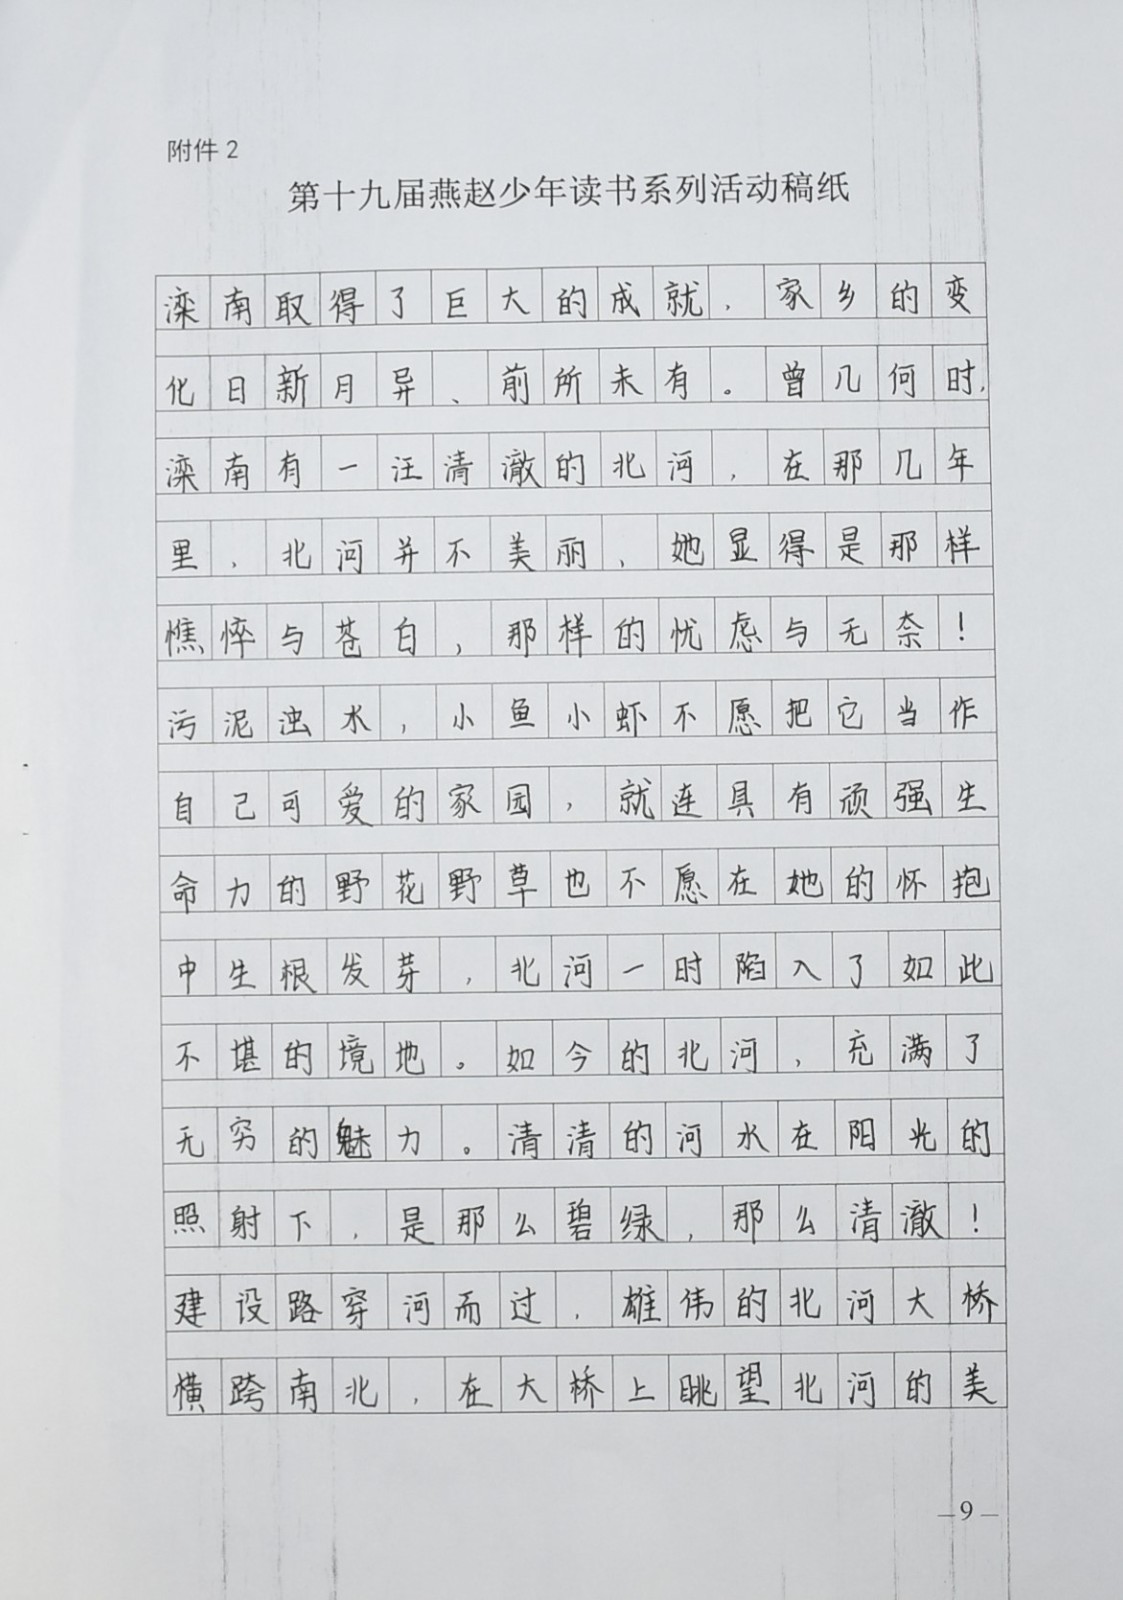 附件2
第十九届燕赵少年读书系列活动稿纸
滦南取得了巨大的成就，家乡的变
化日新月异、前所未有。曾几何时，
滦南有一汪清澈的北河，在那几年
里，北河并不美丽，她显得是那样
憔悴与苍白，那样的忧虑与无奈！
污泥浊水，小鱼小虾不愿把它当作
自己可爱的家园，就连具有顽强生
命力的野花野草也不愿在她的怀抱
中生根发芽，北河一时陷入了如此
不堪的境地。如今的北河，充满了
无穷的魅力。清清的河水在阳光的
照射下，是那么碧绿，那么清澈！
建设路穿河而过，雄伟的北河大桥
横跨南北，在大桥上眺望北河的美
—9—